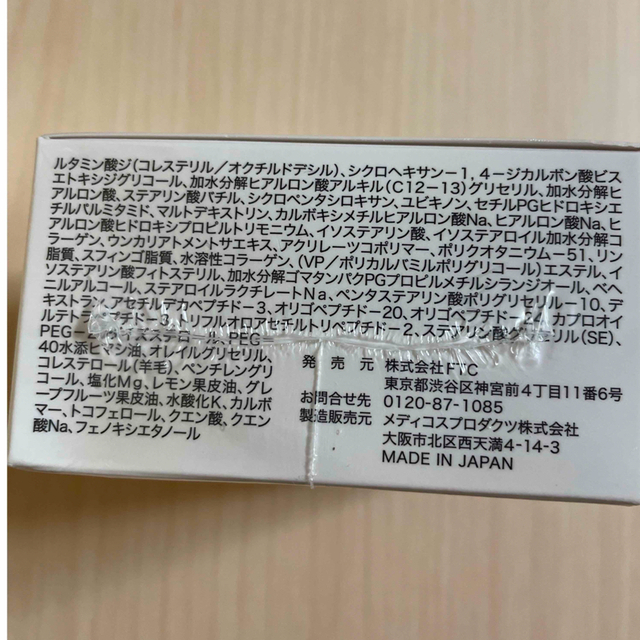 ルタミン酸ジ(コレステリル/オクチルドデシル)、シクロヘキサン-1, 4-ジカルボン酸ビス
エトキシジグリコール、加水分解ヒアルロン酸アルキル(C12-13)グリセリル、加水分解ヒ
アルロン酸、ステアリン酸バチル、シクロペンタシロキサン、ユビキノン、セチルPGヒドロキシエ
チルパルミタミド、マルトデキストリン、カルボキシメチルヒアルロン酸Na、ヒアルロン酸Na、ヒ
アルロン酸ヒドロキシプロピルトリモニウム、イソステアリン酸、イソステアロイル加水分解コ
ラーゲン、ウンカリアトメントサエキス、アクリレーツコポリマー、ポリクオタニウム-51、リン
脂質、スフィンゴ脂質、水溶性コラーゲン、(VP/ポリカルバミルポリグリコール)エステル、イ
ソステアリン酸フィトステリル、加水分解ゴマタンパクPGプロピルメチルシランジオール、ベヘ
ニルアルコール、ステアロイルラクチレートNa、ペンタステアリン酸ポリグリセリル-10、デ
キストラン、アセチルデカペプチド-3、オリゴペプチド-20、オリゴペプチド-24、カプロオイ
ルテトラペプチド-3、トリフルオロアセチルトリペプチド-2、ステアリン酸グリセリル(SE)、
PEG- PEG-
40水添ヒマシ油、オレイルグリセリル、
コレステロール(羊毛)、ペンチレングリ
コール、塩化Mg、レモン果皮油、グレ
ープフルーツ果皮油、水酸化K、カルボ
マー、トコフェロール、クエン酸、クエン
酸Na、フェノキシエタノール
発 売 元 株式会社ドTC
東京都渋谷区神宮前4丁目11番6号
お問合せ先 0120-87-1085
製造販売元 メディコスプロダクツ株式会社
大阪市北区西天満4-14-3
MADE IN JAPAN